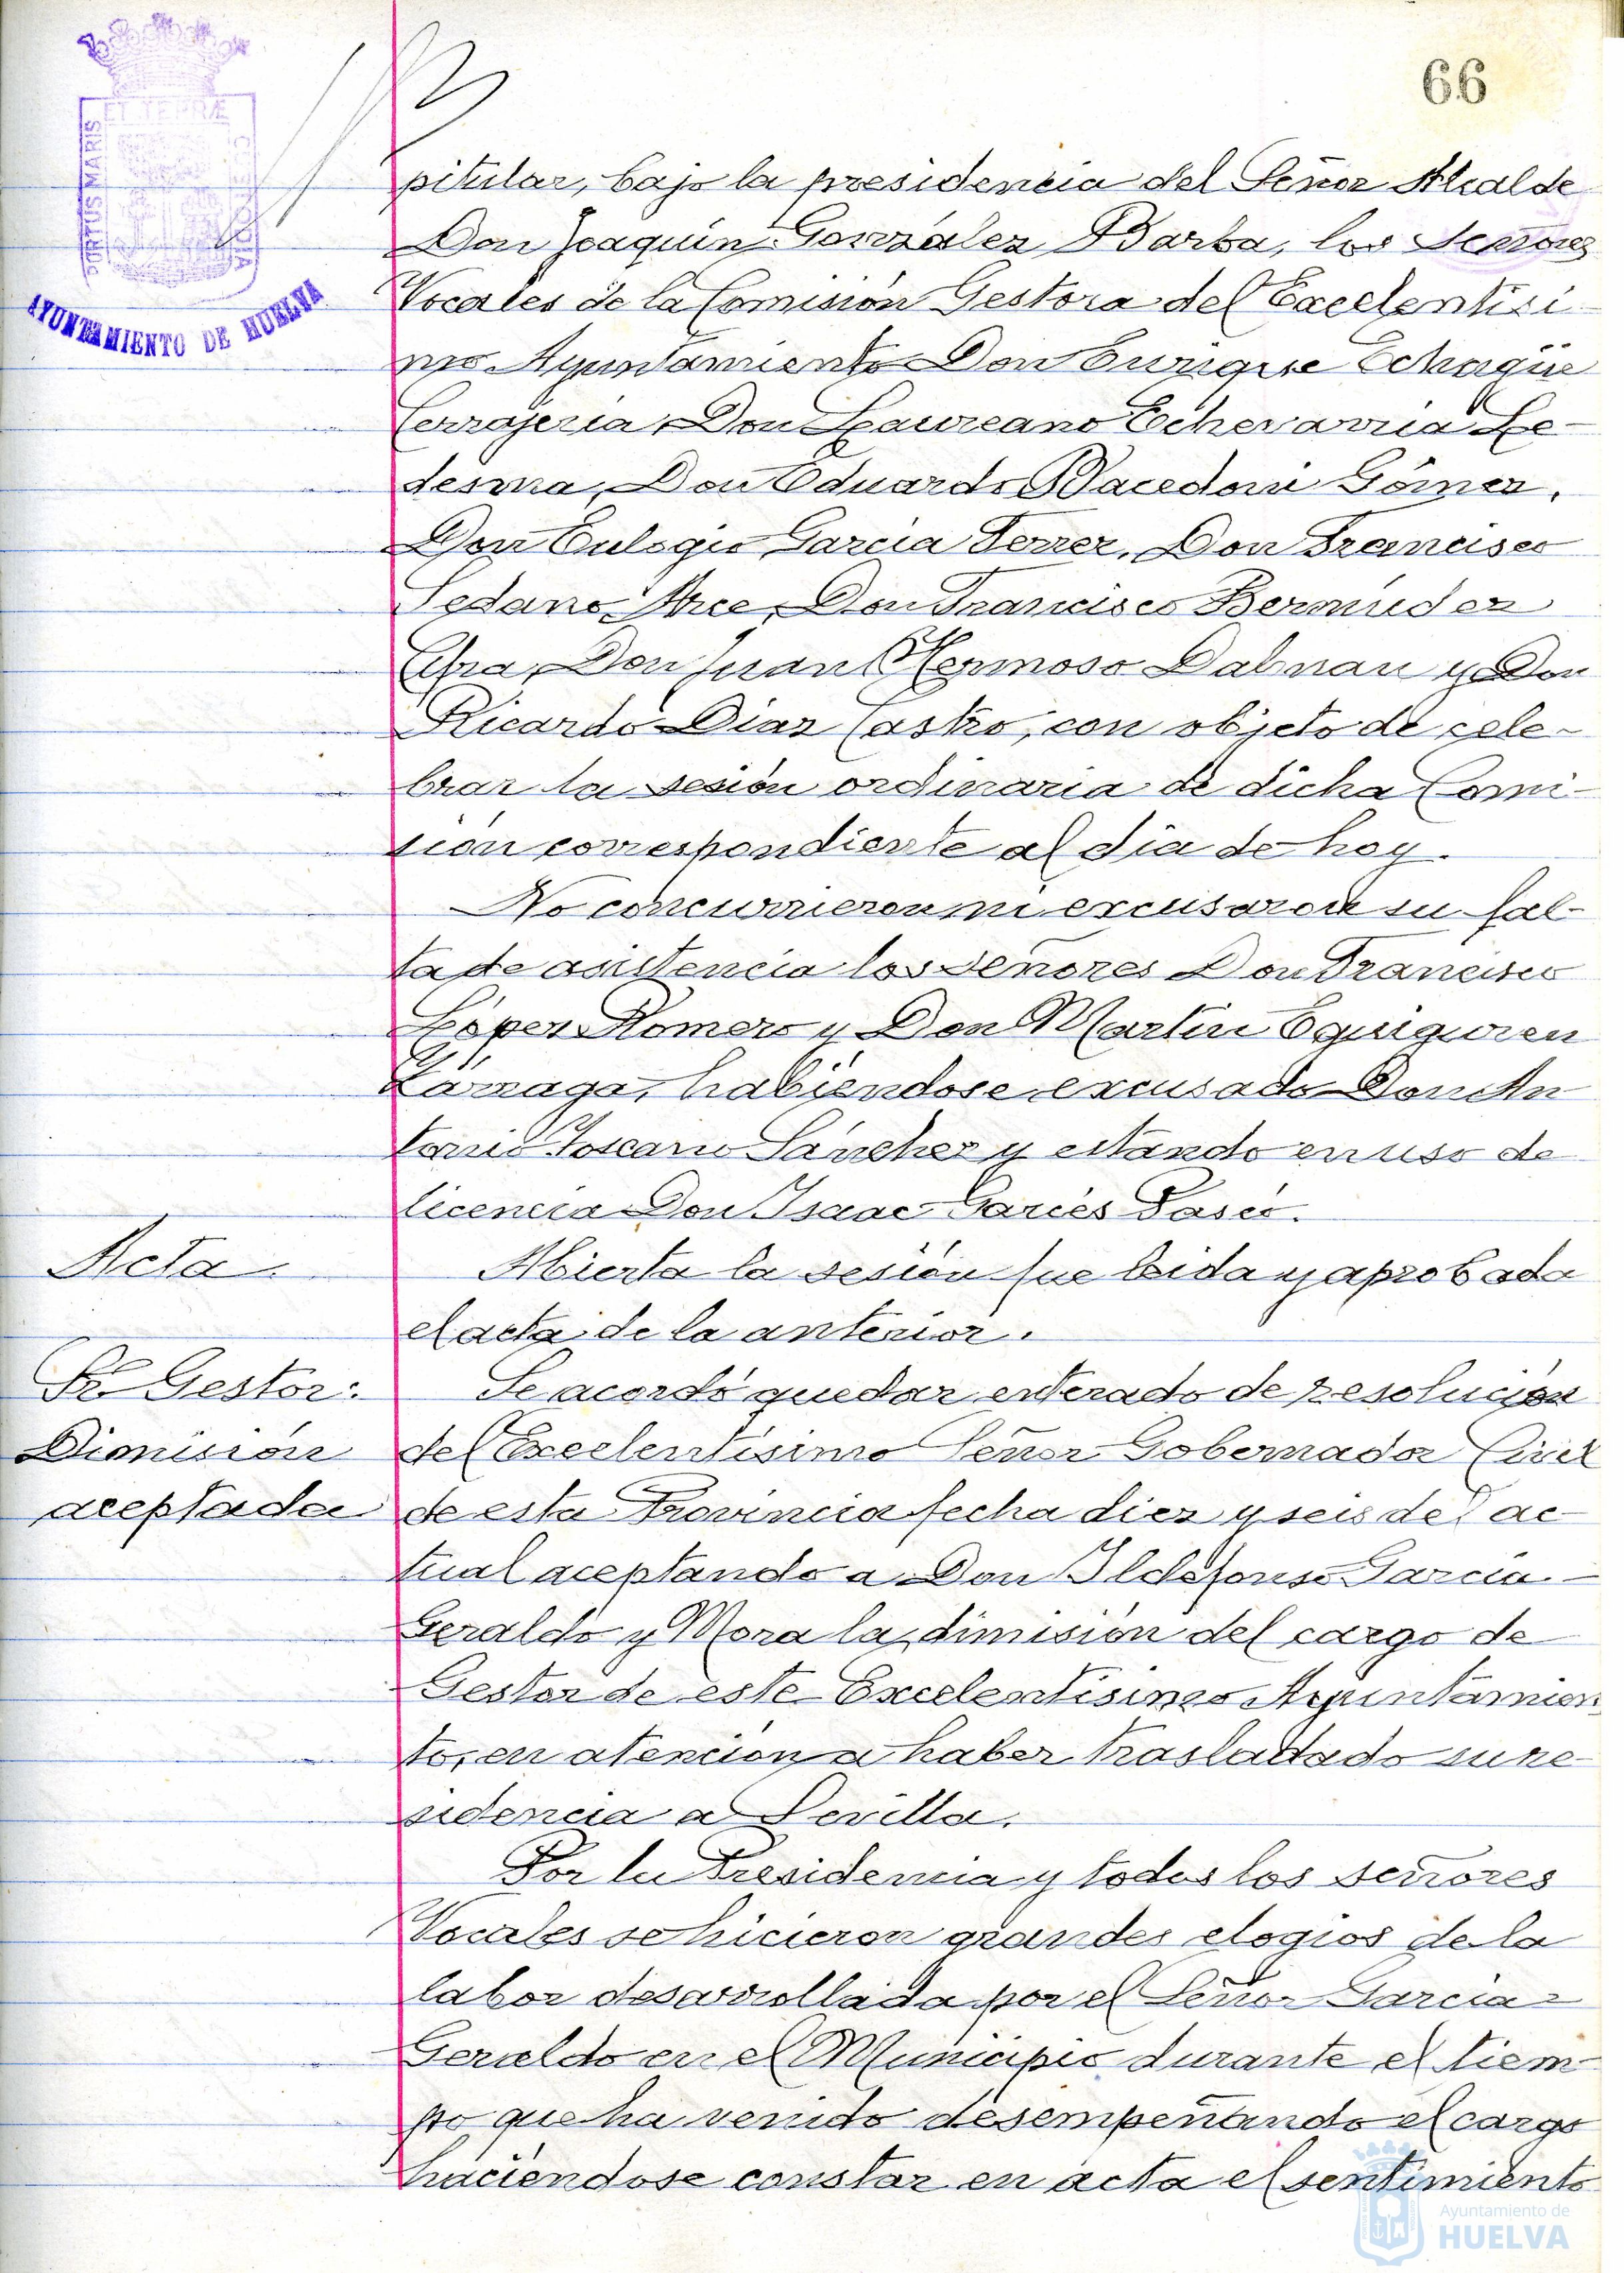 66
PORTUS MARIS
ET TERRÆ
CUSTODIA
AYUNTAMIENTO DE HUELVA
pitular, bajo la presidencia del Señor Alcalde
Don Joaquín González Barba, los Señores
Vocales de la Comisión Gestora del Excelentísi-
mo Ayuntamiento Don Enrique Echagüe
Cerrajería, Don Laureano Echevarría Le-
desma, Don Eduardo Macedoni Gómez,
Don Eulogio García Ferrer, Don Francisco
Sedano Arce, Don Francisco Bermúdez
Don Juan Hermoso Dalmau y Don
Ricardo Díaz Castro, con objeto de cele-
brar la sesión ordinaria de dicha Comi-
sión correspondiente al día de hoy.
No concurrieron ni excusaron su fal-
ta de asistencia los señores Don Francisco
López Romero y Don Martín Eguiguren
Lárraga, habiéndose excusado Don An
tonio Toscano Sánchez y estando en uso de
licencia Don Isaac Garcés
Acta.
Abierta la sesión fue leida y aprobada
el acta de la anterior.
Sr Gestor:
Dimisión
aceptada
Se acordó quedar enterado de resolución
del Excelentísimo Señor Gobernador Civil
de esta Provincia fecha diez y seis del ac-
tual aceptando a Don Ildefonso García-
Geraldo y Mora la dimisión del cargo de
Gestor de este Excelentísimo Ayuntamien
to, en atención a haber trasladado su re-
sidencia a Sevilla.
Por la Presidencia y todos los señores
Vocales se hicieron grandes elogios de la
labor desarrollada por el Señor García-
Geraldo en el Municipio durante el tiem-
po que ha venido desempeñando el cargo
haciéndose constar en acta el sentimiento
Ayuntamiento de
HUELVA